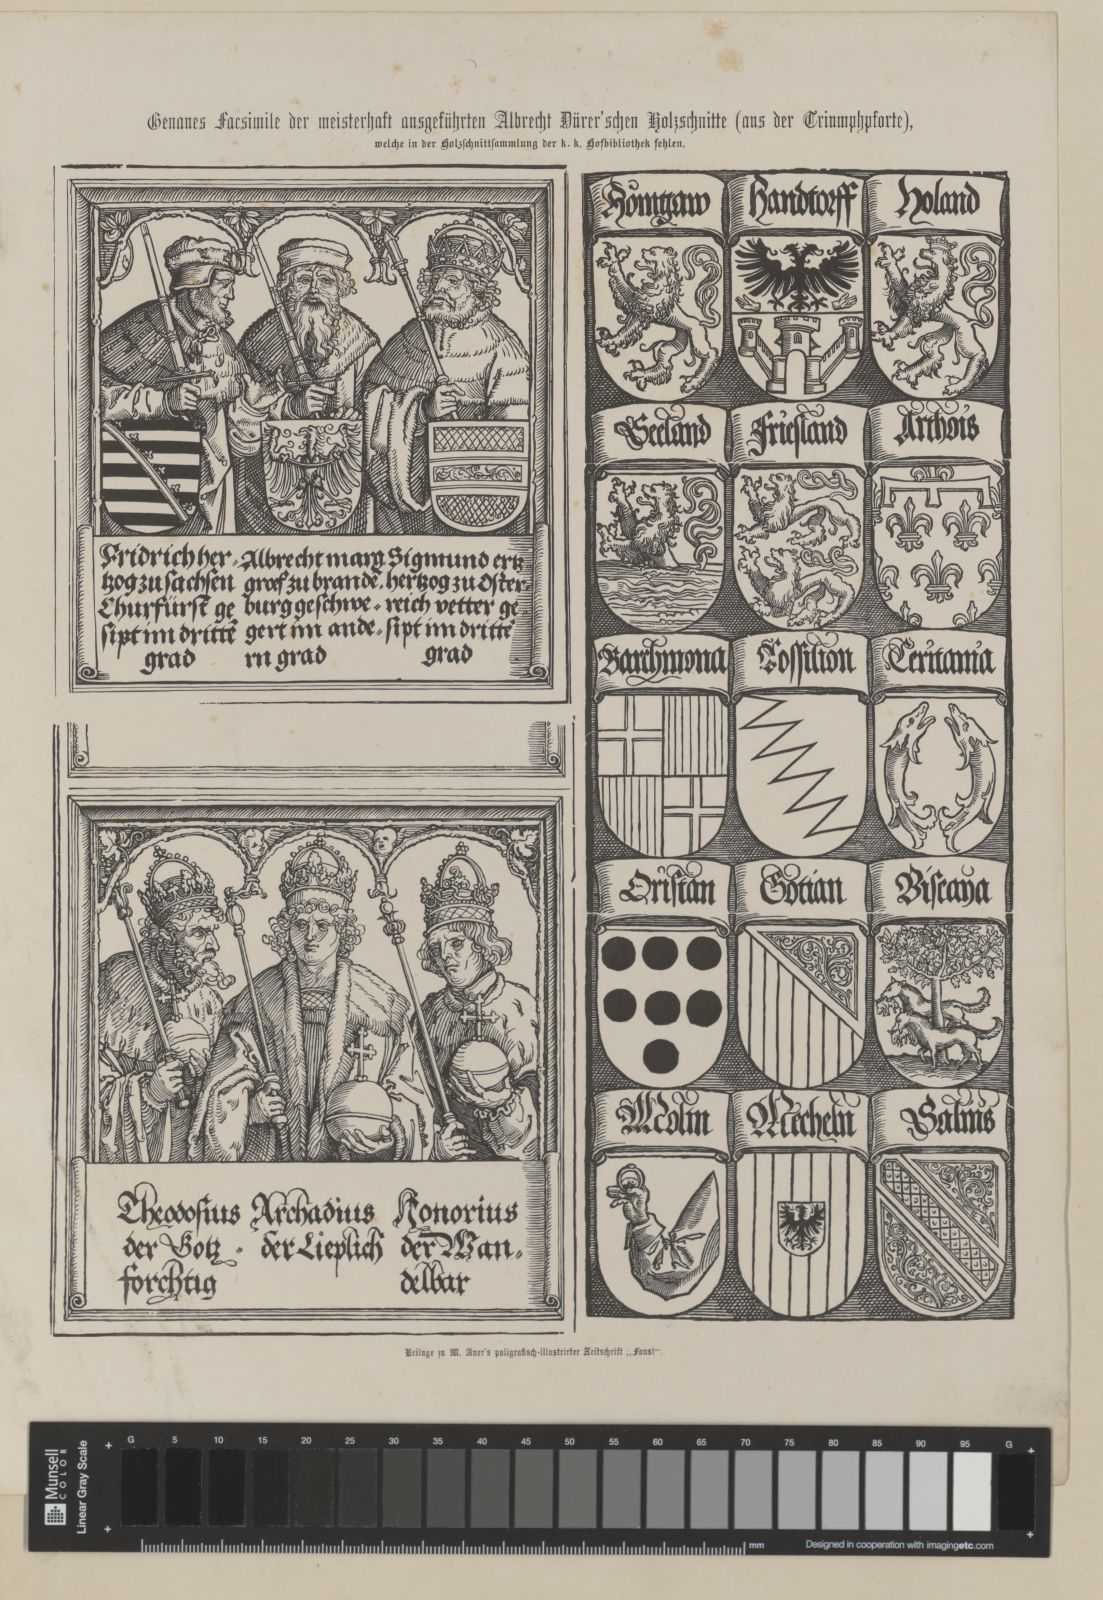 Genaues Facsimile der meisterhaft ausgeführten Albrecht Dürer'schen Holzschnitte (aus der Triumphpforte),
welche in der Holzschnittsammlung der k. k. Hofbibliothek fehlen.
Fridrich her-
tzog zu sachsen
Churfürst ge
sipt im dritte
grad
Albrecht marg
graf zu brande-
burg geschwe-
gert im ande-
rn grad
Sigmund ertz
hertzog zu Oster-
reich vetter ge-
sipt im dritte
grad
Theodosius
der Gotz-
forchtig
Archadius
der Lieplich
Honorius
der Wan-
delbar
Römgaw Handtorff Holand
Seeland Friesland Arthois
Barchinona Tossilion Ceritania
Oristan Gotian Biscaya
Molin Mecheln Salins
Beilage zu M. Auer's poligrafisch-illustrirter Zeitschrift „Faust“.
Munsell
COLOR
Linear Gray Scale
G 5 10 15 20 25 30 35 40 45 50 55 60 65 70 75 80 85 90 95 G
mm
Designed in cooperation with imagingetc.com